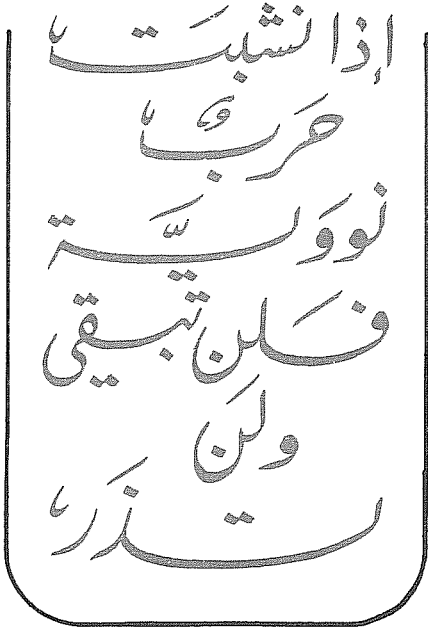 إذا نشبَت
حَربٌ
نووَيَّة
فَلن تبقي
ولَن
تذَر